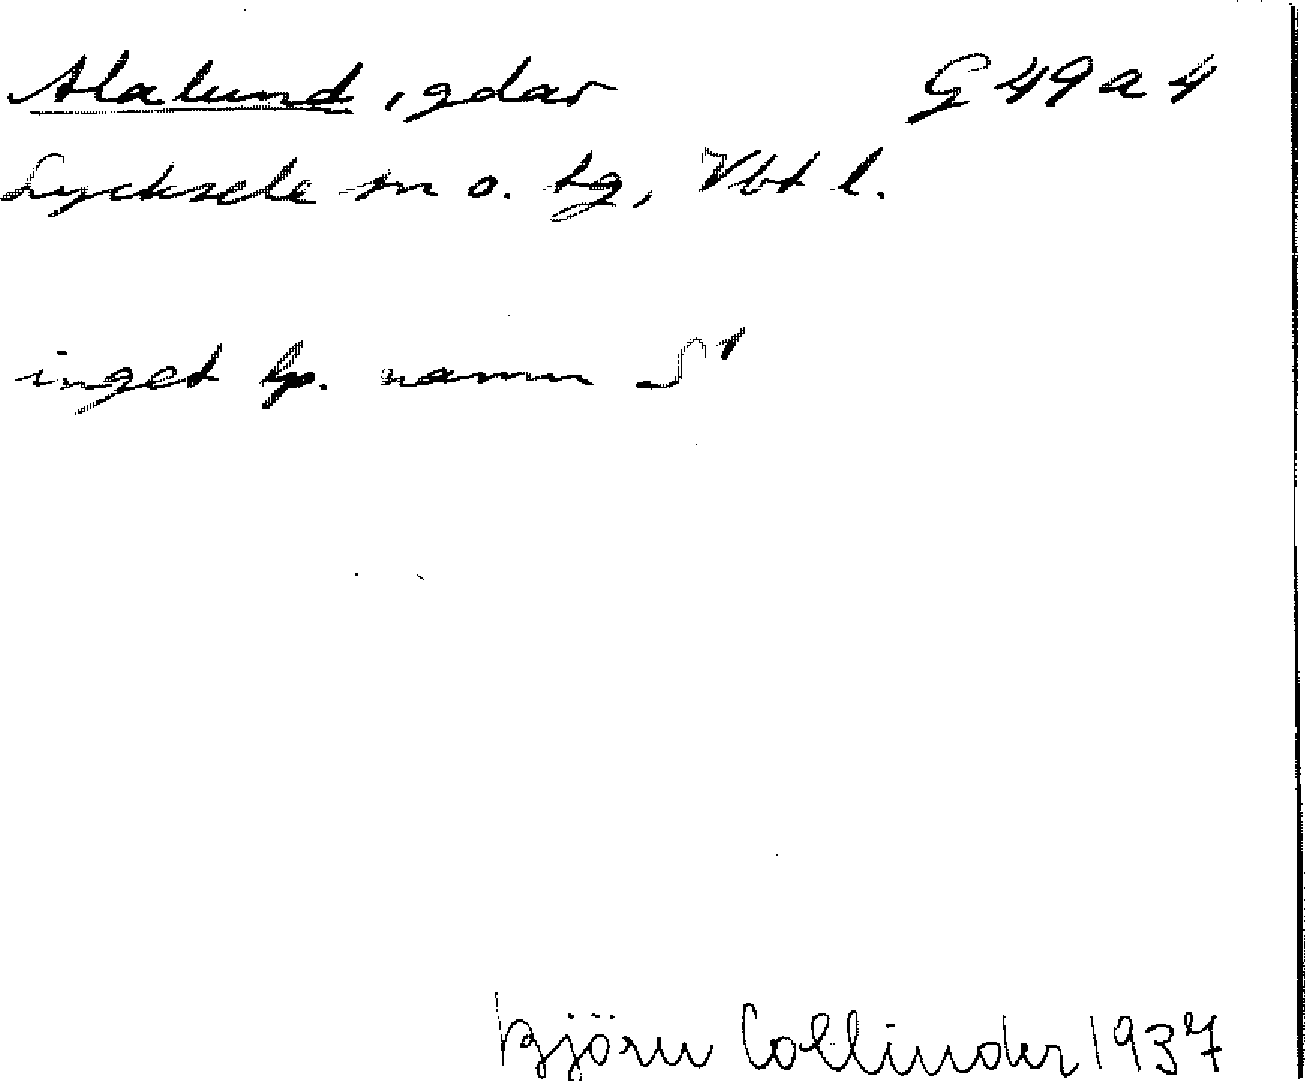 Alalund, gdar G 49 a 4
Lycksele sn o. tg, Vbt l.
inget lp. namn S¹
Björn Collinder 1937